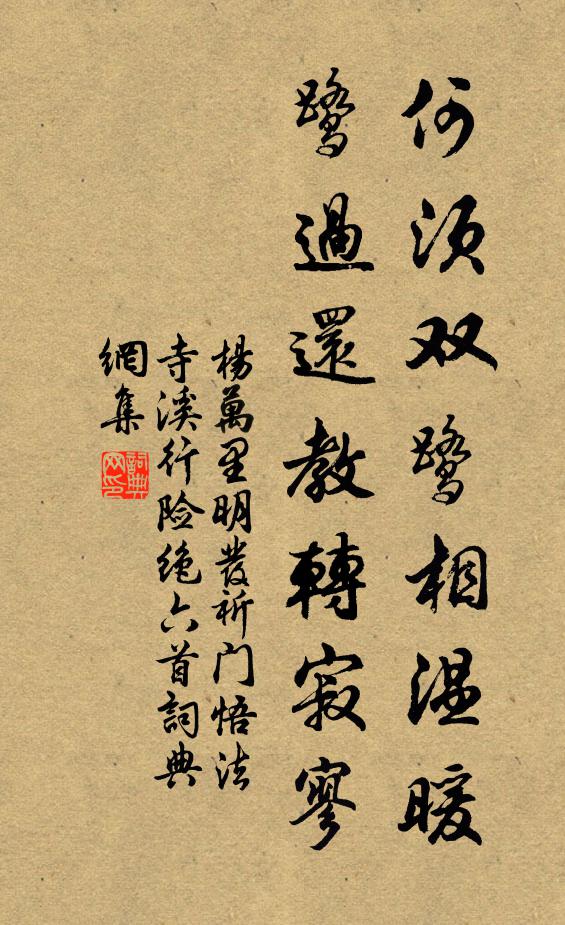 何须双鹭相温暖
鹭過還教轉寂寥
楊萬里明發祈门悟法
寺溪行险绝六首詞典
網集
詞典網印